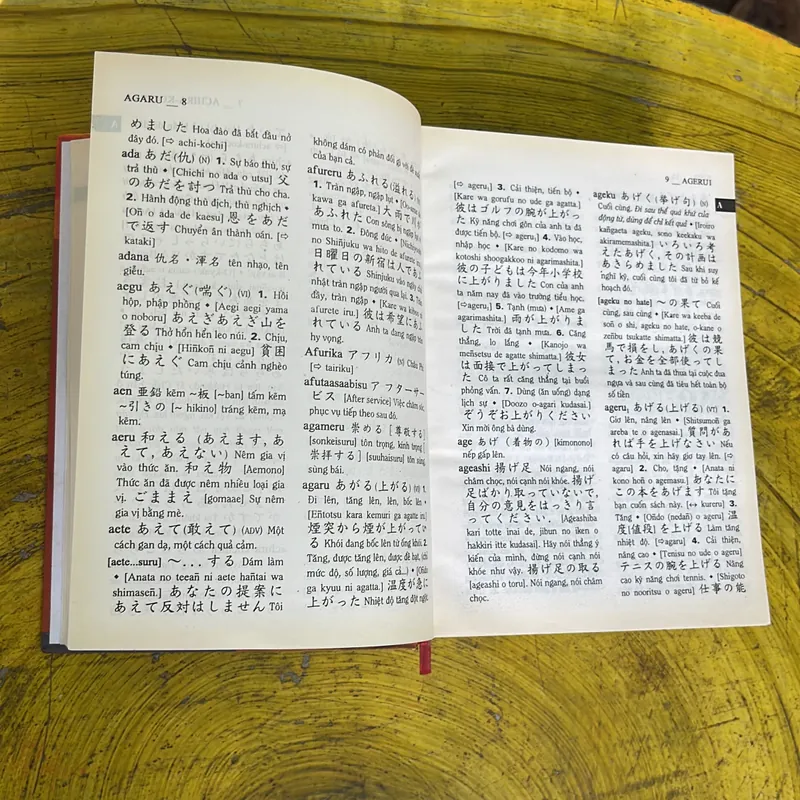 AGARU __ 8
A
めました Hoa đào đã bắt đầu nở
đây đó. [⇨ achi-kochi]
ada あだ(仇) (N) 1. Sự báo thù, sự
trả thù • [Chichi no ada o utsu] 父
のあだを討つ Trả thù cho cha.
2. Hành động thù địch, thù nghịch •
[Oñ o ada de kaesu] 恩をあだ
で返す Chuyển ân thành oán. [⇨
kataki]
adana 仇名・渾名 tên nhạo, tên
giễu.
aegu あえぐ(喘ぐ) (VI) 1. Hồi
hộp, phập phồng • [Aegi aegi yama
o noboru] あえぎあえぎ山を
登る Thở hổn hển leo núi. 2. Chịu,
cam chịu • [Hiñkoñ ni aegu] 貧困
にあえぐ Cam chịu cảnh nghèo
túng.
aen 亜鉛 kẽm ~板 [~ban] tấm kẽm
~引きの [~ hikino] tráng kẽm, mạ
kẽm.
aeru 和える (あえます, あ
えて, あえない) Nêm gia vị
vào thức ăn. 和え物 [Aemono]
Thức ăn đã được nêm nhiều loại gia
vị. ごままえ [gomaae] Sự nêm
gia vị bằng mè.
aete あえて(敢えて) (ADV) Một
cách gan dạ, một cách quả cảm.
[aete...suru] 〜...する Dám làm
• [Anata no teeañ ni aete hañtai wa
shimaseñ.] あなたの提案に
あえて反対はしません Tôi
không dám có phản đối gì với đề
của bạn cả.
afureru あふれる(溢れる)
1. Tràn ngập, ngập lụt •
kawa ga afureta] 大雨で川
あふれた Con sông bị ngập
mưa to. 2. Đông đúc •
no Shiñjuku wa hito de afurete
日曜日の新宿は人であ
れている Shinjuku vào ngày
nhật tràn ngập người qua lại. 3.
đầy, tràn ngập • [Kare wa kiboo
afurete iru.] 彼は希望にあ
れている Anh ta đang ngập
hy vọng.
Afurika アフリカ (N) Châu Phi
[⇨ tairiku]
afutaasaabisu アフターサー
ビス [After service] Việc chăm sóc,
phục vụ tiếp theo sau đó.
agameru 崇める [尊敬する]
[sonkeisuru] tôn trọng, kính trọng
崇拝する] [suuhaisuru] tôn sùng,
sùng bái.
agaru あがる(上がる) (VI) 1.
Đi lên, tăng lên, lên, bốc lên •
[Eñtotsu kara kemuri ga agatte
煙突から煙が上がってい
る Khói đang bốc lên từ ống khói. 2.
Tăng, được tăng lên, được đề bạt, (chỉ
mức độ, số lượng, giá cả...) • [Oñdo
ga kyuu ni agatta.] 温度が急に
上がった Nhiệt độ tăng đột ngột.
9 __ AGERU1
A
[⇨ ageru₁] 3. Cải thiện, tiến bộ •
[Kare wa gorufu no ude ga agatta.]
彼はゴルフの腕が上がっ
た Kỹ năng chơi gôn của anh ta đã
được tiến bộ. [⇨ ageru₁] 4. Vào học,
nhập học • [Kare no kodomo wa
kotoshi shoogakkoo ni agarimashita.]
彼の子どもは今年小学校
に上がりました Con của anh
ta năm nay đã vào trường tiểu học.
[⇨ageru₁] 5. Tạnh (mưa) • [Ame ga
agarimashita.] 雨が上がりま
した Trời đã tạnh mưa. 6. Căng
thẳng, lo lắng • [Kanojo wa
meñsetsu de agatte shimatta.] 彼女
は面接で上がってしまっ
た Cô ta rất căng thẳng tại buổi
phỏng vấn. 7. Dùng (ăn uống) dạng
lịch sự • [Doozo o-agari kudasai.]
ぞうぞお上がりください
Xin mời ông bà dùng.
age あげ (着物の) [kimonono]
nếp gấp lên.
ageashi 揚げ足 Nói ngang, nói
châm chọc, nói cạnh nói khóe. 揚げ
足ばかり取っていないで,
自分の意見をはっきり言
ってください. [Ageashiba
kari totte inai de, jibun no iken o
hakkiri itte kudasai]. Hãy nói thẳng ý
kiến của mình, đừng nói cạnh nói
khóe như vậy. 揚げ足の取る
[ageashi o toru]. Nói ngang, nói châm
chọc.
ageku あげく(挙げ句) (N)
Cuối cùng. Đi sau thể quá khứ của
động từ, dùng để chỉ kết quả • [Iroiro
kañgaeta ageku, sono keekaku wa
akiramemashita.] いろいろ考
えたあげく, その計画は
あきらめました Sau khi suy
nghĩ kỹ, cuối cùng tôi đã từ bỏ kế
hoạch đó.
[ageku no hate] 〜の果て Cuối
cùng, sau cùng • [Kare wa keeba de
soñ o shi, ageku no hate, o-kane o
zeñbu tsukatte shimatta.] 彼は競
馬で損をし, あげくの果
て, お金を全部使ってし
まった Anh ta đã thua tại cuộc đua
ngựa và sau cùng đã tiêu hết toàn bộ
số tiền
ageru₁ あげる(上げる) (VT) 1.
Giơ lên, nâng lên • [Shitsumoñ ga
areba te o agenasai.] 質問があ
れば手を上げなさい Nếu
có câu hỏi, xin hãy giơ tay lên. [⇨
agaru] 2. Cho, tặng • [Anata ni
kono hoñ o agemasu] あなたに
この本をあげます Tôi tặng
bạn cuốn sách này. [↔ kureru] 3.
Tăng • [Oñdo (nedañ) o ageru] 温
度(値段)を上げる Làm tăng
nhiệt độ. [⇨agaru] 4. Cải thiện,
nâng cao • [Tenisu no ude o ageru]
テニスの腕を上げる Nâng
cao kỹ năng chơi tennis. • [Shigoto
no nooritsu o ageru] 仕事の能